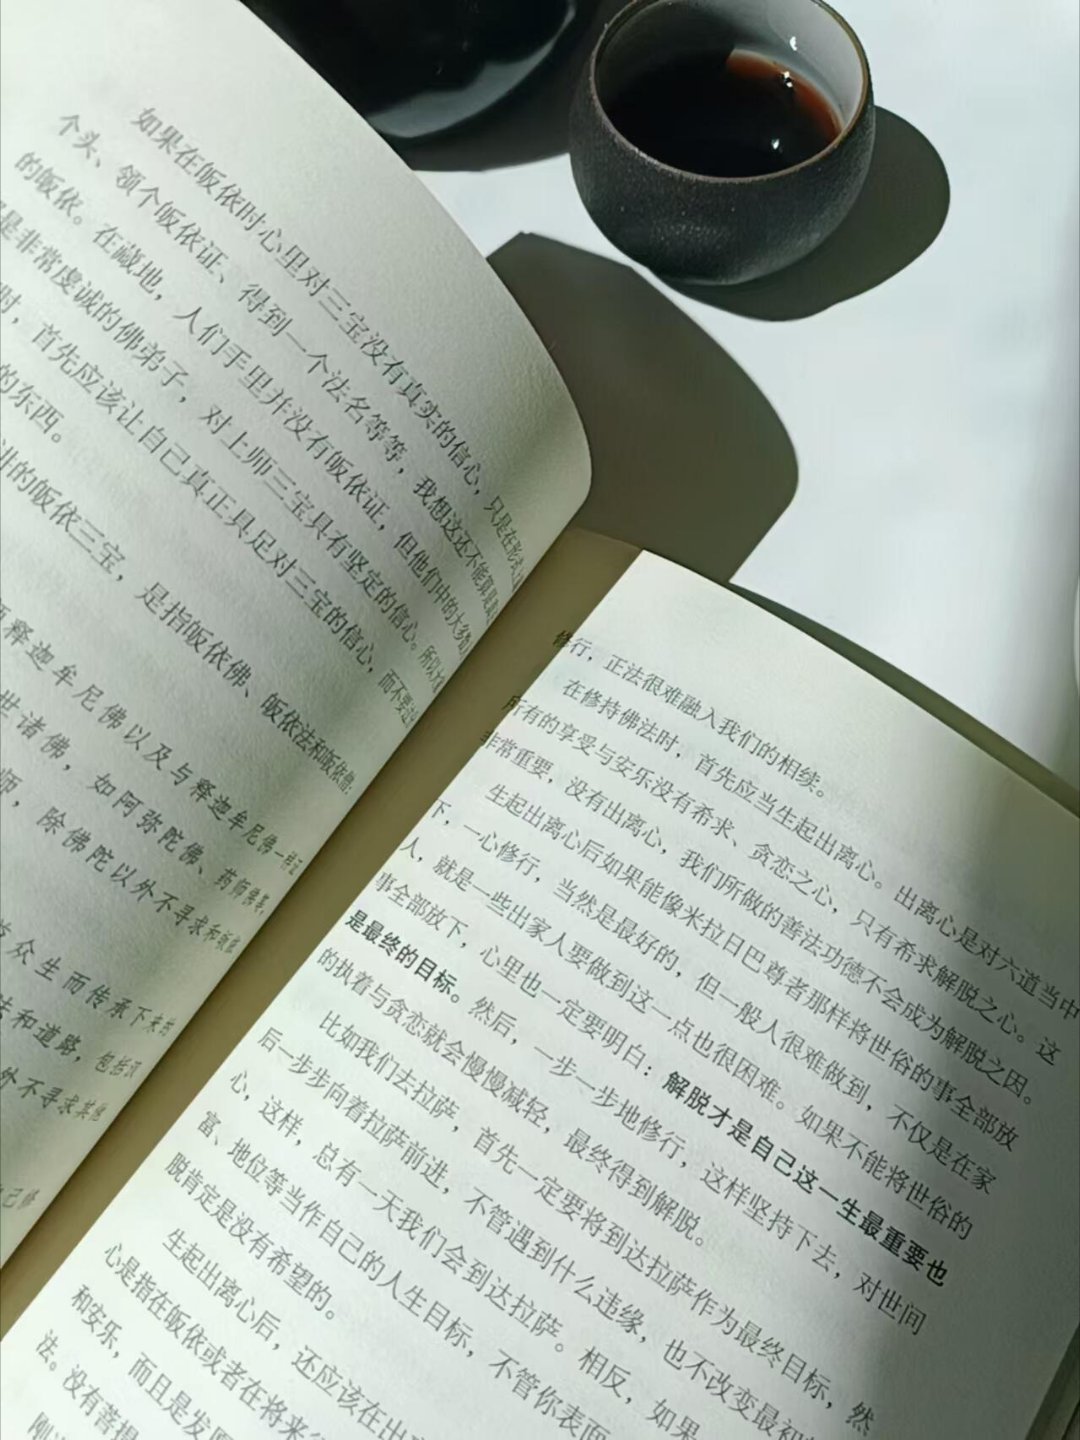 如果在皈依时心里对三宝没有真实的信心，只是在形式上
个头、领个皈依证、得到一个法名等等，我想这还不能算是真
的皈依。在藏地，人们手里并没有皈依证，但他们中的大多数
是非常虔诚的佛弟子，对上师三宝具有坚定的信心。所以
时，首先应该让自己真正具足对三宝的信心，而不要
的东西。
讲的皈依三宝，是指皈依佛、皈依法和皈依僧。
释迦牟尼佛以及与释迦牟尼佛一样
世诸佛，如阿弥陀佛、药师佛等，
师，除佛陀以外不寻求和皈依
众生而传承下来的
法和道路，包括
外不寻求其他
己修
修行，正法很难融入我们的相续。
在修持佛法时，首先应当生起出离心。出离心是对六道当中
所有的享受与安乐没有希求、贪恋之心，只有希求解脱之心。这
非常重要，没有出离心，我们所做的善法功德不会成为解脱之因。
生起出离心后如果能像米拉日巴尊者那样将世俗的事全部放
下，一心修行，当然是最好的，但一般人很难做到，不仅是在家
人，就是一些出家人要做到这一点也很困难。如果不能将世俗的
事全部放下，心里也一定要明白：解脱才是自己这一生最重要也
是最终的目标。然后，一步一步地修行，这样坚持下去，对世间
的执着与贪恋就会慢慢减轻，最终得到解脱。
比如我们去拉萨，首先一定要将到达拉萨作为最终目标，然
后一步步向着拉萨前进，不管遇到什么违缘，也不改变最初
心，这样，总有一天我们会到达拉萨。相反，如果
富、地位等当作自己的人生目标，不管你表面
脱肯定是没有希望的。
生起出离心后，还应该在出
心是指在皈依或者在将来
和安乐，而且是发愿
法。没有菩提